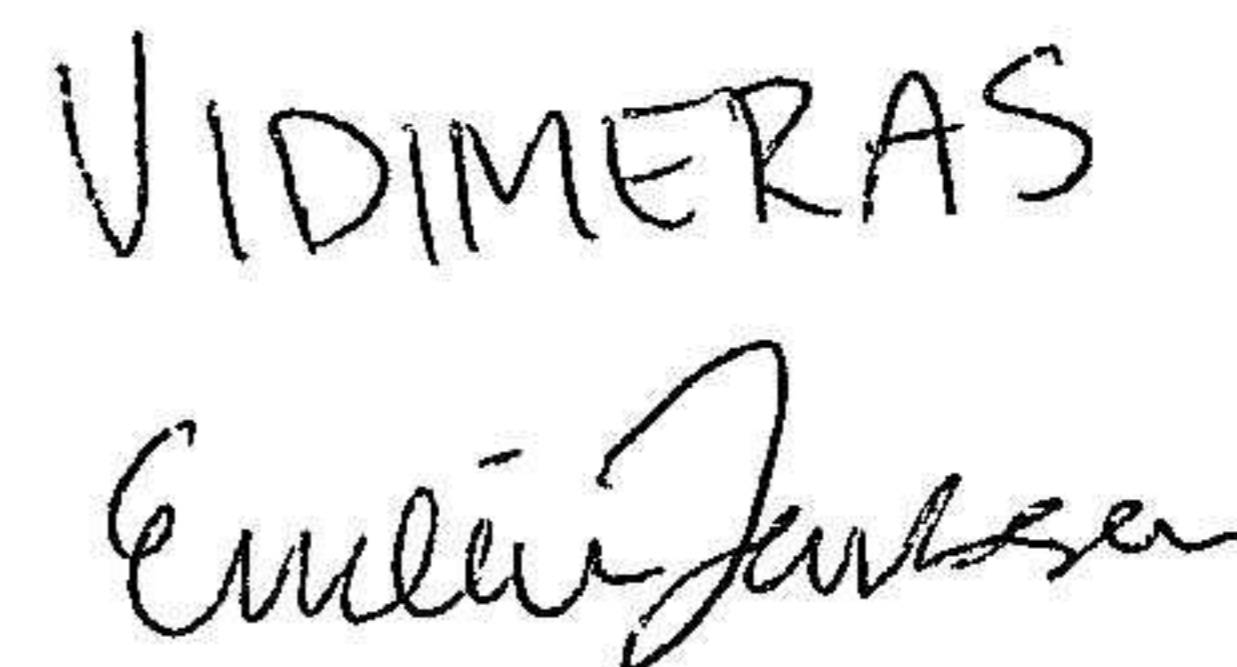 VIDIMERAS
Emelie Janssen